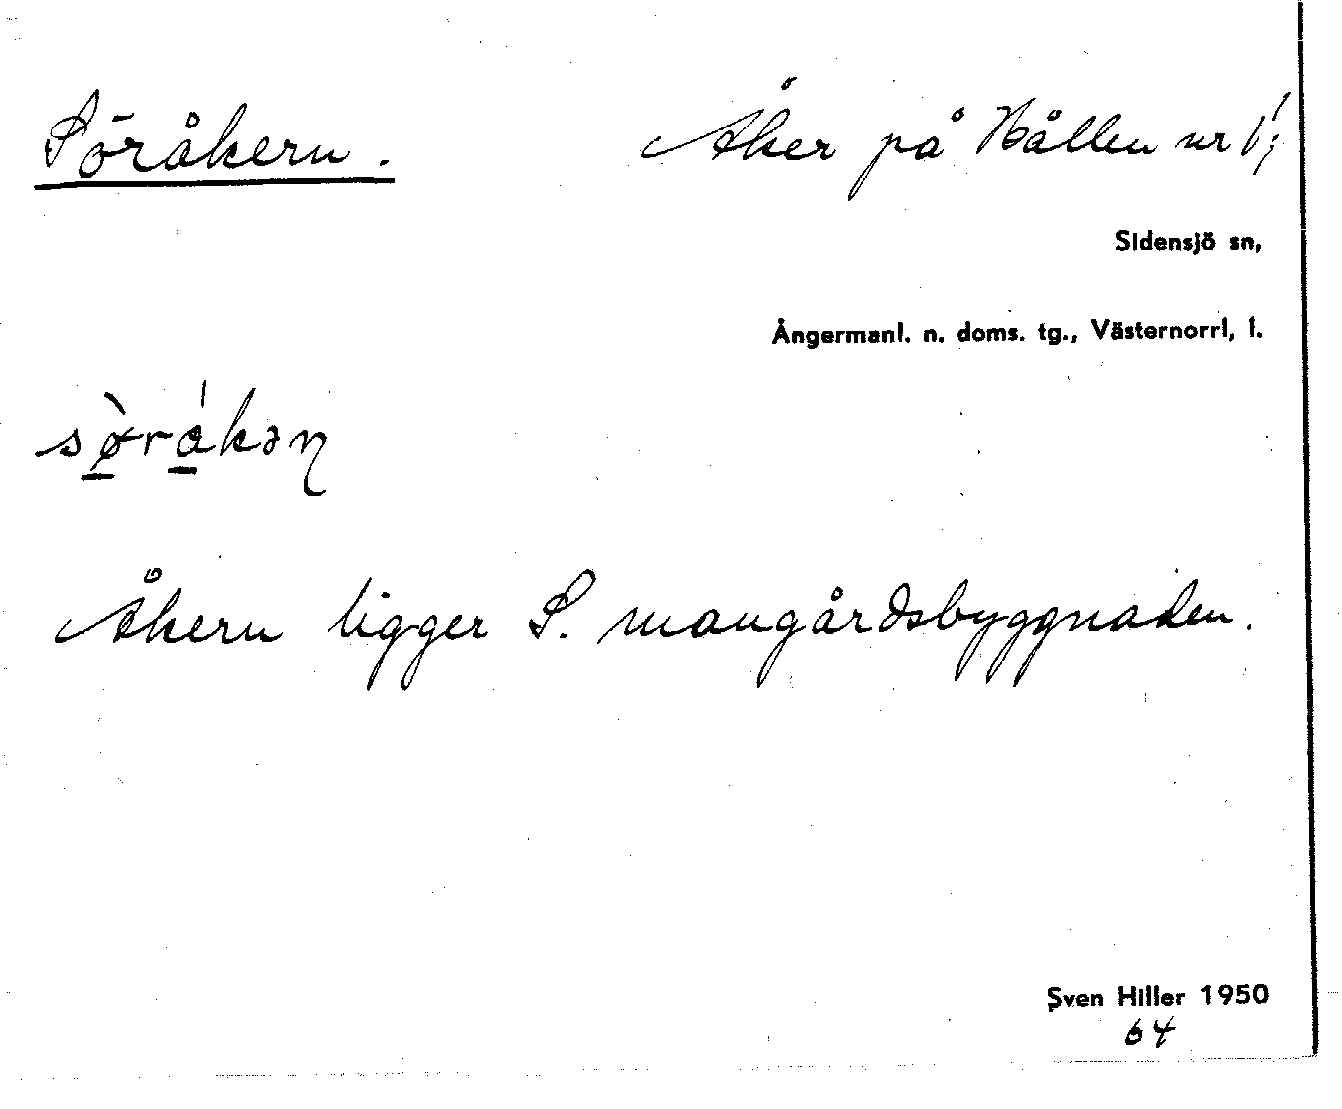 Söråkern. Åker på Hållen nr 1;
Sidensjö sn,
Ångermanl. n. doms. tg., Västernorrl, l.
sø̀rákəɳ
Åkern ligger S. mangårdsbyggnaden.
Sven Hiller 1950
64